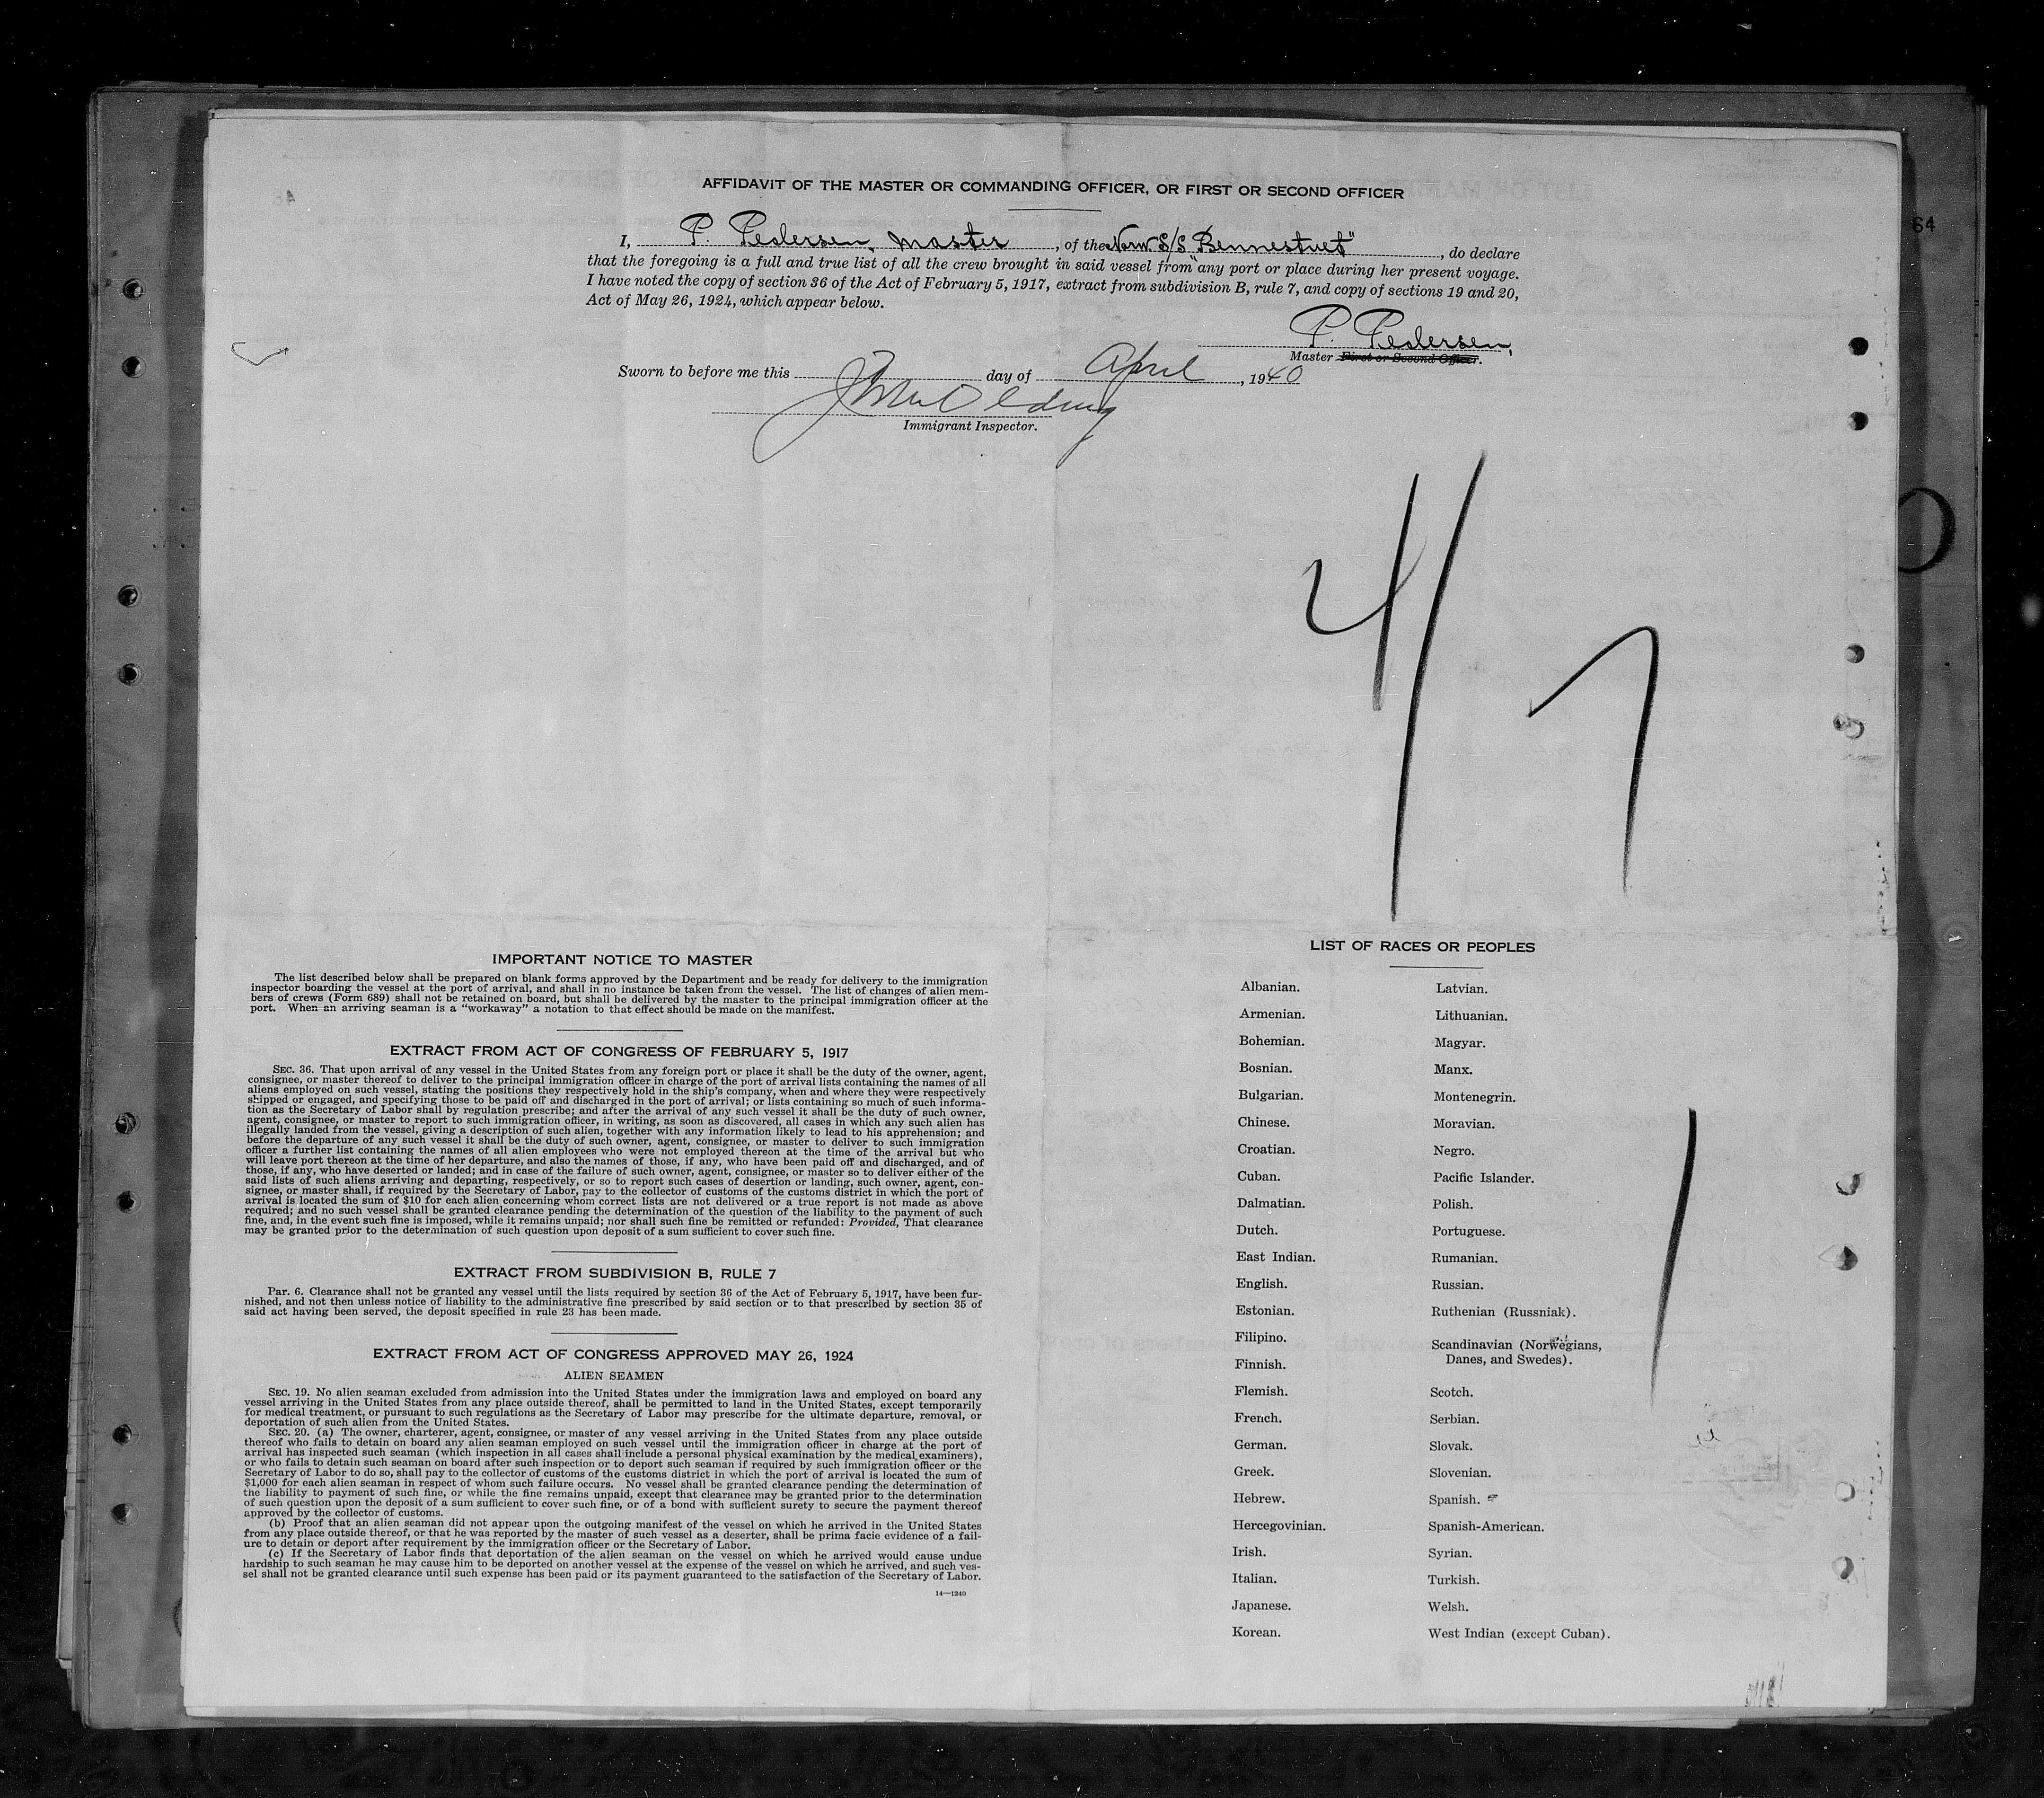 AFFIDAVIT OF THE MASTER OR COMMANDING OFFICER, OR FIRST OR SECOND OFFICER
64
I, P. Pedersen, master, of the Norw. S/S "Bennestvet", do declare
that the foregoing is a full and true list of all the crew brought in said vessel from any port or place during her present voyage.
I have noted the copy of section 36 of the Act of February 5, 1917, extract from subdivision B, rule 7, and copy of sections 19 and 20,
Act of May 26, 1924, which appear below.
P. Pedersen,
Master First or Second Officer.
Sworn to before me this 7 day of April, 1940
Immigrant Inspector.
4/7
IMPORTANT NOTICE TO MASTER
The list described below shall be prepared on blank forms approved by the Department and be ready for delivery to the immigration
inspector boarding the vessel at the port of arrival, and shall in no instance be taken from the vessel. The list of changes of alien mem-
bers of crews (Form 689) shall not be retained on board, but shall be delivered by the master to the principal immigration officer at the
port. When an arriving seaman is a "workaway" a notation to that effect should be made on the manifest.
EXTRACT FROM ACT OF CONGRESS OF FEBRUARY 5, 1917
SEC. 36. That upon arrival of any vessel in the United States from any foreign port or place it shall be the duty of the owner, agent,
consignee, or master thereof to deliver to the principal immigration officer in charge of the port of arrival lists containing the names of all
aliens employed on such vessel, stating the positions they respectively hold in the ship's company, when and where they were respectively
shipped or engaged, and specifying those to be paid off and discharged in the port of arrival; or lists containing so much of such informa-
tion as the Secretary of Labor shall by regulation prescribe; and after the arrival of any such vessel it shall be the duty of such owner,
agent, consignee, or master to report to such immigration officer, in writing, as soon as discovered, all cases in which any such alien has
illegally landed from the vessel, giving a description of such alien, together with any information likely to lead to his apprehension; and
before the departure of any such vessel it shall be the duty of such owner, agent, consignee, or master to deliver to such immigration
officer a further list containing the names of all alien employees who were not employed thereon at the time of the arrival but who
will leave port thereon at the time of her departure, and also the names of those, if any, who have been paid off and discharged, and of
those, if any, who have deserted or landed; and in case of the failure of such owner, agent, consignee, or master so to deliver either of the
said lists of such aliens arriving and departing, respectively, or so to report such cases of desertion or landing, such owner, agent, con-
signee, or master shall, if required by the Secretary of Labor, pay to the collector of customs of the customs district in which the port of
arrival is located the sum of $10 for each alien concerning whom correct lists are not delivered or a true report is not made as above
required; and no such vessel shall be granted clearance pending the determination of the question of the liability to the payment of such
fine, and, in the event such fine is imposed, while it remains unpaid; nor shall such fine be remitted or refunded: Provided, That clearance
may be granted prior to the determination of such question upon deposit of a sum sufficient to cover such fine.
EXTRACT FROM SUBDIVISION B, RULE 7
Par. 6. Clearance shall not be granted any vessel until the lists required by section 36 of the Act of February 5, 1917, have been fur-
nished, and not then unless notice of liability to the administrative fine prescribed by said section or to that prescribed by section 35 of
said act having been served, the deposit specified in rule 23 has been made.
EXTRACT FROM ACT OF CONGRESS APPROVED MAY 26, 1924
ALIEN SEAMEN
SEC. 19. No alien seaman excluded from admission into the United States under the immigration laws and employed on board any
vessel arriving in the United States from any place outside thereof, shall be permitted to land in the United States, except temporarily
for medical treatment, or pursuant to such regulations as the Secretary of Labor may prescribe for the ultimate departure, removal, or
deportation of such alien from the United States.
SEC. 20. (a) The owner, charterer, agent, consignee, or master of any vessel arriving in the United States from any place outside
thereof who fails to detain on board any alien seaman employed on such vessel until the immigration officer in charge at the port of
arrival has inspected such seaman (which inspection in all cases shall include a personal physical examination by the medical examiners),
or who fails to detain such seaman on board after such inspection or to deport such seaman if required by such immigration officer or the
Secretary of Labor to do so, shall pay to the collector of customs of the customs district in which the port of arrival is located the sum of
$1,000 for each alien seaman in respect of whom such failure occurs. No vessel shall be granted clearance pending the determination of
the liability to payment of such fine, or while the fine remains unpaid, except that clearance may be granted prior to the determination
of such question upon the deposit of a sum sufficient to cover such fine, or of a bond with sufficient surety to secure the payment thereof
approved by the collector of customs.
(b) Proof that an alien seaman did not appear upon the outgoing manifest of the vessel on which he arrived in the United States
from any place outside thereof, or that he was reported by the master of such vessel as a deserter, shall be prima facie evidence of a fail-
ure to detain or deport after requirement by the immigration officer or the Secretary of Labor.
(c) If the Secretary of Labor finds that deportation of the alien seaman on the vessel on which he arrived would cause undue
hardship to such seaman he may cause him to be deported on another vessel at the expense of vessel on which he arrived, and such ves-
sel shall not be granted clearance until such expense has been paid or its payment guaranteed to the satisfaction of the Secretary of Labor.
14—1240
LIST OF RACES OR PEOPLES
Albanian.
Armenian.
Bohemian.
Bosnian.
Bulgarian.
Chinese.
Croatian.
Cuban.
Dalmatian.
Dutch.
East Indian.
English.
Estonian.
Filipino.
Finnish.
Flemish.
French.
German.
Greek.
Hebrew.
Hercegovinian.
Irish.
Italian.
Japanese.
Korean.
Latvian.
Lithuanian.
Magyar.
Manx.
Montenegrin.
Moravian.
Negro.
Pacific Islander.
Polish.
Portuguese.
Rumanian.
Russian.
Ruthenian (Russniak).
Scandinavian (Norwegians,
Danes, and Swedes).
Scotch.
Serbian.
Slovak.
Slovenian.
Spanish.
Spanish-American.
Syrian.
Turkish.
Welsh.
West Indian (except Cuban).